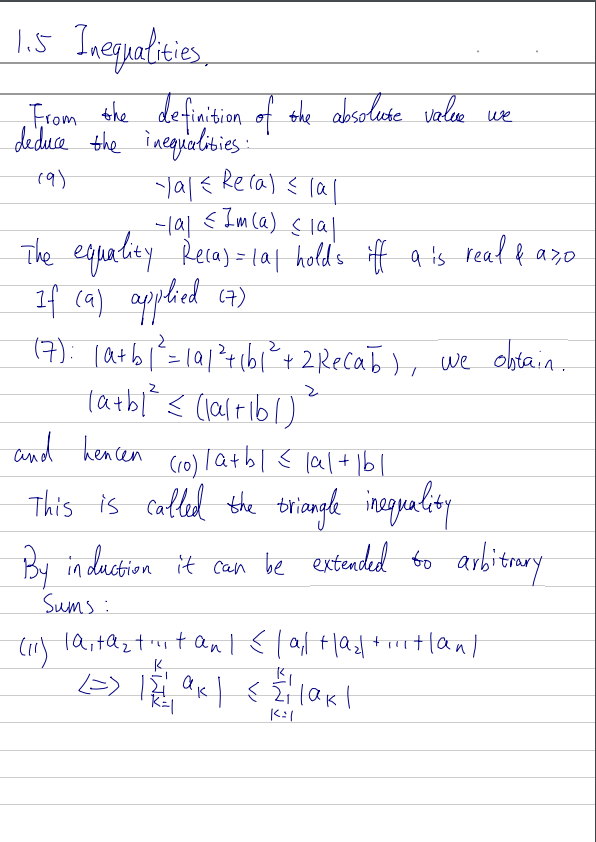 1.5 Inequalities.
From the definition of the absolute value we
deduce the inequalities:
(9) -|a| ≤ Re(a) ≤ |a|
-|a| ≤ Im(a) ≤ |a|
The equality Re(a) = |a| holds iff a is real & a≥0
If (9) applied (7)
(7): |a+b|² = |a|²+|b|² + 2Re(ab̅), we obtain.
|a+b|² ≤ (|a|+|b|)²
and hencen (10) |a+b| ≤ |a|+|b|
This is called the triangle inequality
By induction it can be extended to arbitrary
Sums:
(11) |a₁+a₂+...+aₙ| ≤ |a₁|+|a₂|+...+|aₙ|
<=> |∑_{K=1}^{K} a_K| ≤ ∑_{K=1}^{K} |a_K|